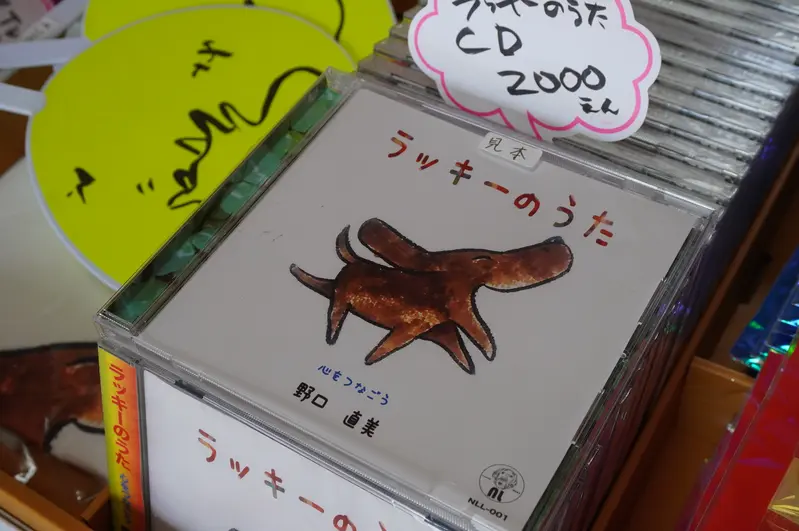 ラッキーのうた
CD
2000
えん
見本
ラッキーのうた
心をつなごう
野口 直美
nL
NLL-001
ラッキーのうた
ラッキーのうた